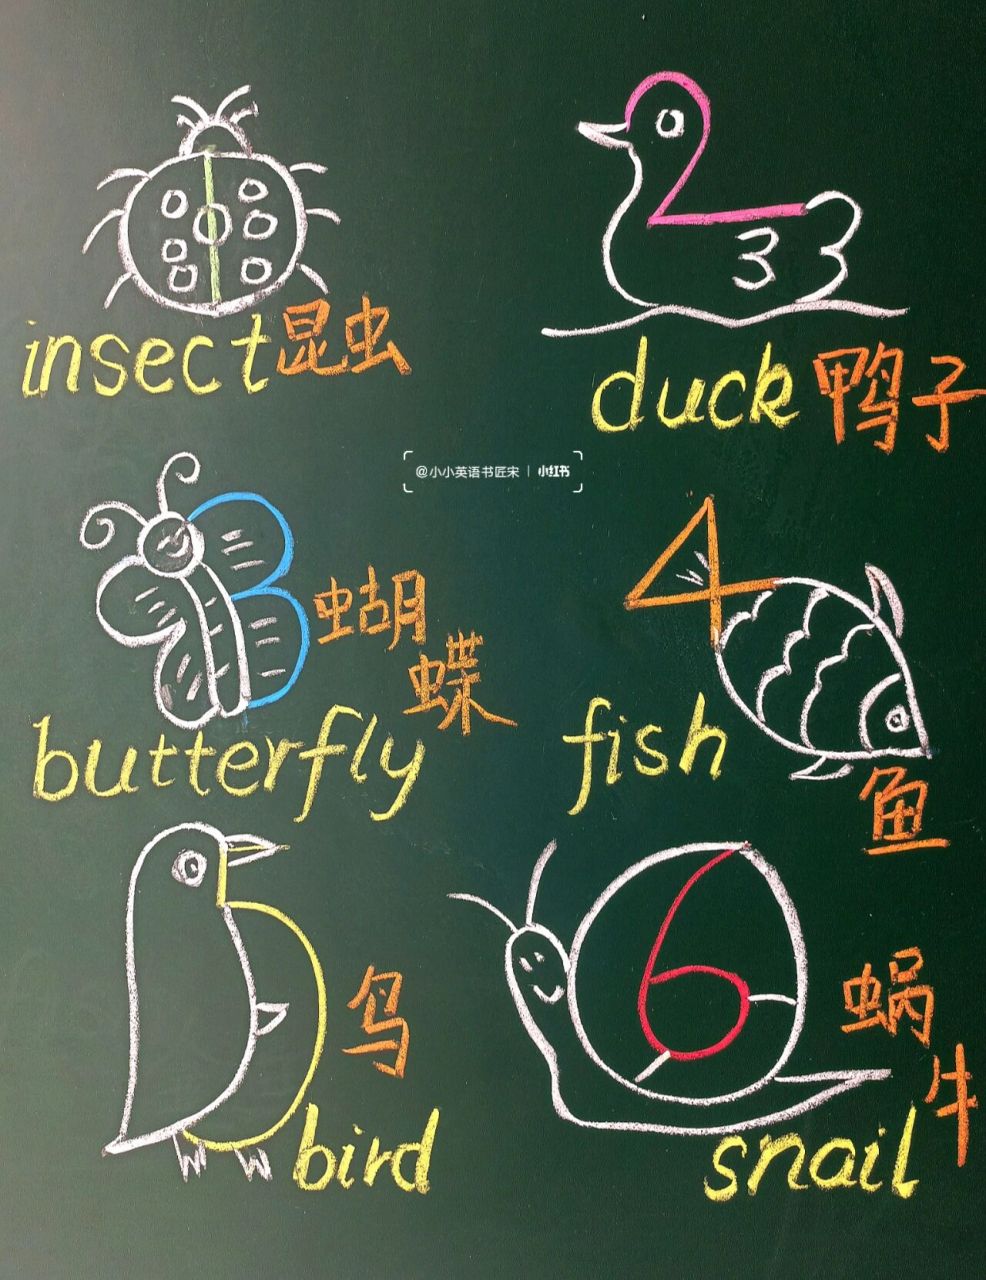 insect昆虫
duck鸭子
@小小英语书匠宋 | 小红书
蝴
蝶
butterfly
4
fish
鱼
鸟
bird
6
蜗
牛
snail